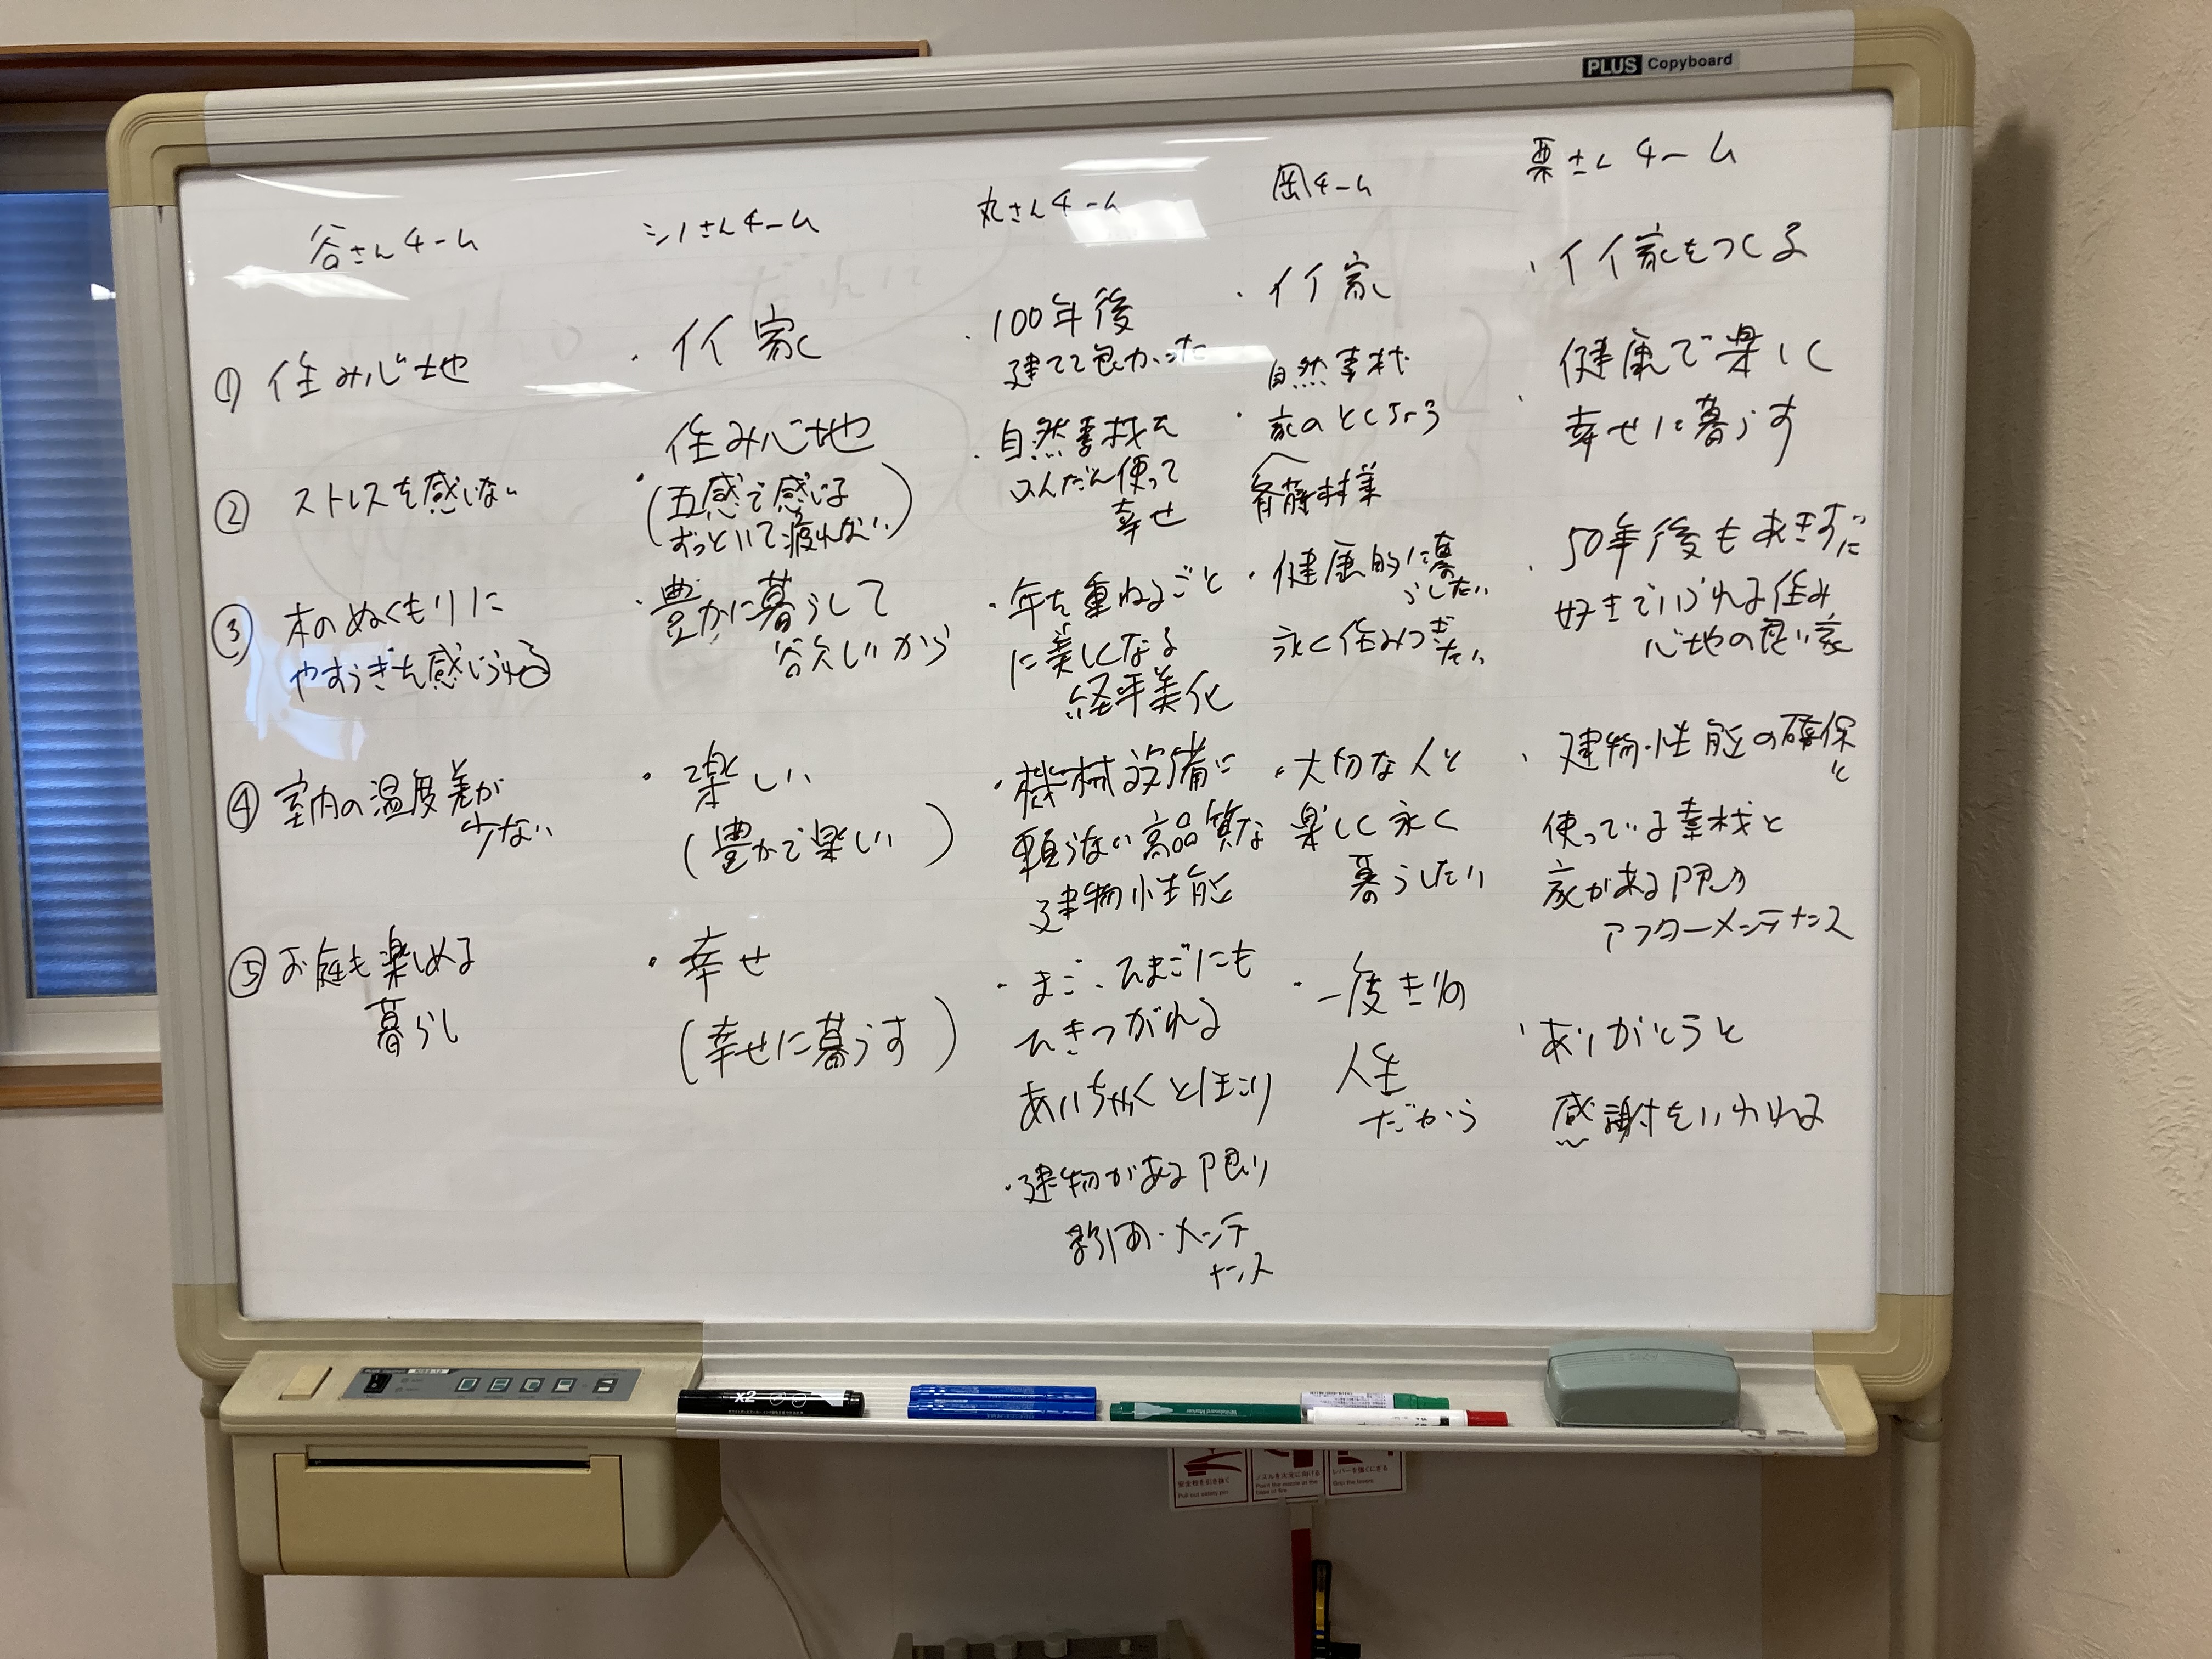 PLUS Copyboard
谷さんチーム
① 住み心地
② ストレスを感じない
③ 木のぬくもりに
やすらぎを感じられる
④ 室内の温度差が
少ない
⑤ お庭も楽しめる
暮らし
シノさんチーム
・イイ家
・住み心地
(五感で感じる
ずっといて疲れない)
・豊かに暮らして
欲しいから
・楽しい
(豊かで楽しい)
・幸せ
(幸せに暮らす)
丸さんチーム
・100年後
建てて良かった
・自然素材を
ふんだん使って
幸せ
・年を重ねるごと
に美しくなる
経年美化
・機械設備に
頼らない高品質な
建物性能
・まご、ひまごにも
ひきつがれる
あいちゃくとほこり
・建物がある限り
・メンテ
ナンス
岡チーム
・イイ家
自然素材
・家のとくちょう
斉藤材業
・健康的に暮
らしたい
永く住みつぎ
たい
・大切な人と
楽しく永く
暮らしたい
・一度きりの
人生
だから
栗さんチーム
・イイ家をつくる
・健康で楽しく
幸せに暮らす
・50年後もあきずに
好きでいられる住み
心地の良い家
・建物・性能の確保
と
使っている素材と
家がある限りの
アフターメンテナンス
・ありがとうと
感謝をいわれる
x2
Whiteboard Marker
安全栓を引き抜く
Pull out safety pin.
ノズルを火元に向ける
Point the nozzle at the
base of fire.
レバーを強くにぎる
Grip the levers.